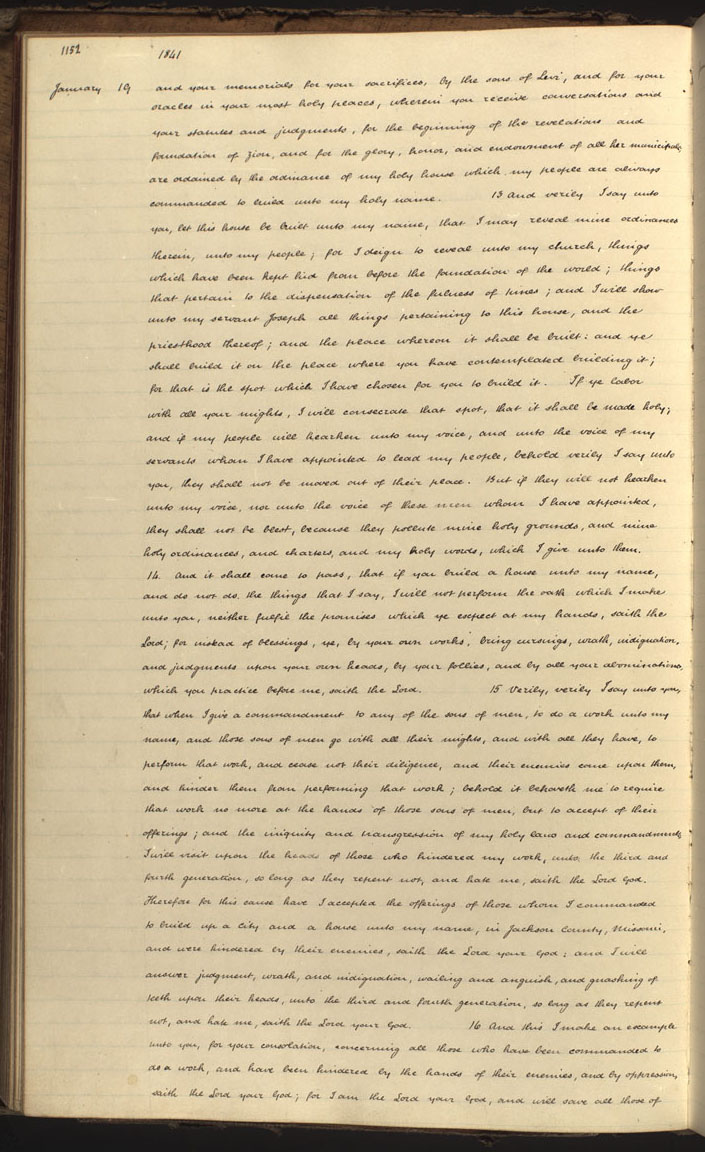 1152 1841
January 19 and your memorials for your sacrifices, by the sons of Levi, and for your
oracles in your most holy places, wherein you receive conversations and
your statutes and judgments, for the beginning of the revelations and
foundation of Zion, and for the glory, honor, and endowment of all her municipals,
are ordained by the ordinance of my holy house which my people are always
commanded to build unto my holy name. 13 And verily I say unto
you, let this house be built unto my name, that I may reveal mine ordinances
therein, unto my people; for I deign to reveal unto my church, things
which have been kept hid from before the foundation of the world; things
that pertain to the dispensation of the fulness of times; and I will show
unto my servant Joseph all things pertaining to this house, and the
priesthood thereof; and the place whereon it shall be built: and ye
shall build it on the place where you have contemplated building it;
for that is the spot which I have chosen for you to build it. If ye labor
with all your mights, I will consecrate that spot, that it shall be made holy;
and if my people will hearken unto my voice, and unto the voice of my
servants whom I have appointed to lead my people, behold verily I say unto
you, they shall not be moved out of their place. But if they will not hearken
unto my voice, nor unto the voice of these men whom I have appointed,
they shall not be blest, because they pollute mine holy grounds, and mine
holy ordinances, and charters, and my holy words, which I give unto them.
14. And it shall come to pass, that if you build a house unto my name,
and do not do, the things that I say, I will not perform the oath which I make
unto you, neither fulfil the promises which ye expect at my hands, saith the
Lord; for instead of blessings, ye, by your own works, bring cursings, wrath, indignation,
and judgments upon your own heads, by your follies, and by all your abominations,
which you practice before me, saith the Lord. 15 Verily, verily I say unto you,
that when I give a commandment to any of the sons of men, to do a work unto my
name, and those sons of men go with all their mights, and with all they have, to
perform that work, and cease not their diligence, and their enemies come upon them,
and hinder them from performing that work; behold it behoveth me to require
that work no more at the hands of those sons of men, but to accept of their
offerings; and the iniquity and transgression of my holy laws and commandments
I will visit upon the heads of those who hindered my work, unto the third and
fourth generation, so long as they repent not, and hate me, saith the Lord God.
Therefore for this cause have I accepted the offerings of those whom I commanded
to build up a city and a house unto my name, in Jackson County, Missouri,
and were hindered by their enemies, saith the Lord your God: and I will
answer judgment, wrath, and indignation, wailing and anguish, and gnashing of
teeth upon their heads, unto the third and fourth generation, so long as they repent
not, and hate me, saith the Lord your God. 16 And this I make an example
unto you, for your consolation, concerning all those who have been commanded to
do a work, and have been hindered by the hands of their enemies, and by oppression,
saith the Lord your God; for I am the Lord your God, and will save all those of